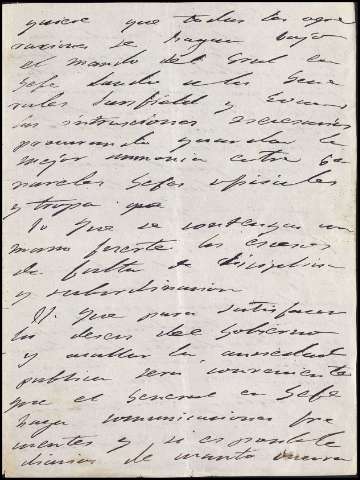 quiere que todas las ope
raciones se hagan bajo
el mando del Gral en
Gefe dando a los Gene
rales Sanfield y
las intrucciones necesarias
procurando guardar la
mejor armonia entre Ge
narales Gefes oficiales
y tropa que
Io Que se contengan con
mano fuerte los escesos
de falta de disciplina
y subordinacion
II. Que para satisfacer
los deseos del Gobierno
y acallar la ansiedad
publica sera conveniente
que el General en Gefe
haga comunicaciones fre
mentes y si es posible
diarias de cuanto ocurra